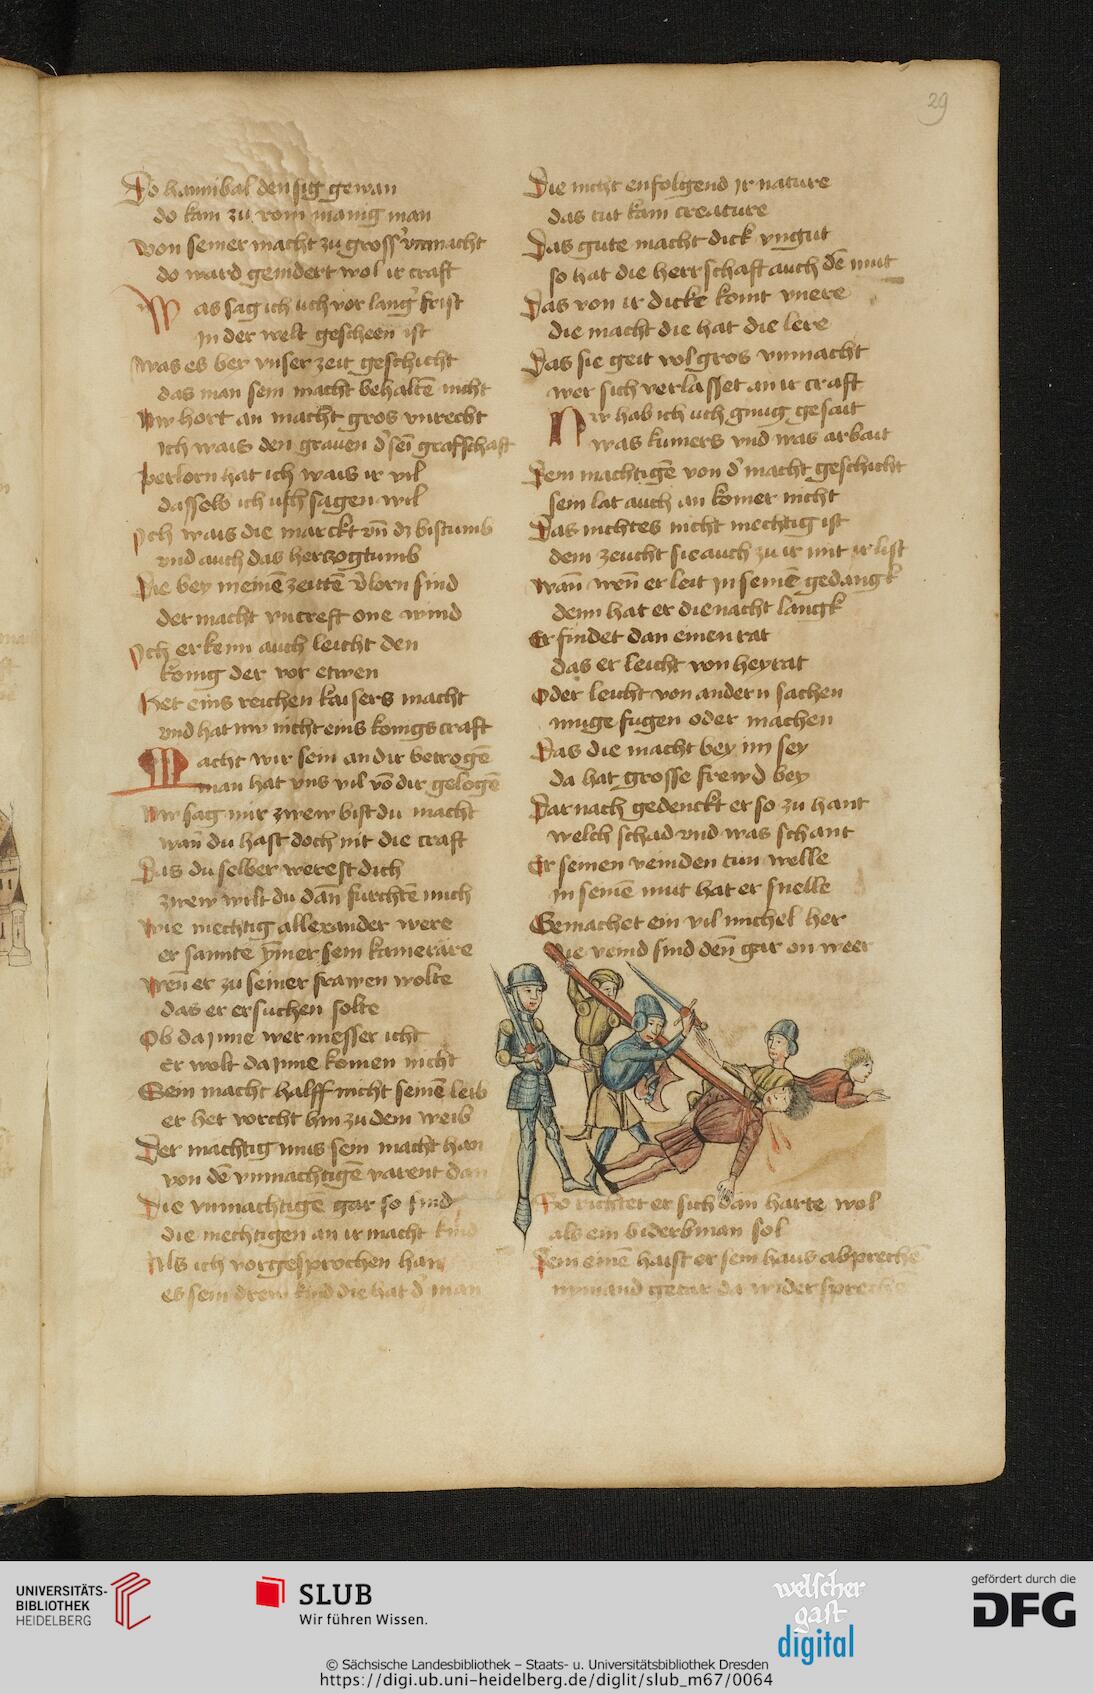 29
Do hannibal den sig gewan
do kam zu rom manig man
Von seiner macht zu gross vnmacht
do ward gemdert wol ir craft
Was sag ich uch vor lang frist
in der welt gescheen ist
was es ber vnser zeit geschicht
das man sein macht behaltē nicht
Nw hort an macht gros vnrecht
ich wais den grauen d' sein grafschaft
Verlorn hat ich wais ir vil
dasselb ich uch sagen wil
Ich wais die marckt vn̄ dz bistumb
vnd auch das herzogtumb
Die bey meinē zeittē v'lorn sind
der macht vncreft one wind
Ich erkenn auch leicht den
konig der vor etwen
Het eins reichen kaisers macht
vnd hat nw nicht eins konigs craft
Macht wir sein an dir betrogē
man hat vns vil vō dir gelogē
Nw sag mir zwew bistdu macht
wan̄ du hast doch nit die craft
Das du selber werest dich
zwew wilt du dan̄ furchtē mich
Wie mechtig allexander were
er sannte ymer sein kamerare
Wen̄ er zu seiner frawen wolte
das er ersuchen solte
Ob da jnne wer messer icht
er wolt da jnne komen nicht
Sein macht halff nicht seinē leib
er het vorcht hin zu dem weib
Der machtig mus sein macht han
von dē vnmachtigē varent dan
Die vnmachtigē gar so sind
die mechtigen an ir macht kind
Als ich vorgesprochen han
es sein drew kind die hat d' man
Die nicht enfolgend jr nature
das tut kain creature
Das gute macht dick vngut
so hat die herrschaft auch dē mut
Das von ir dicke komt vnere
die macht die hat die lere
Das sie geit vol gros vnmacht
wer sich verlasset an ir craft
Nw hab ich uch gnug gesait
was kumers vnd was arbait
Dem machtigē von d' macht geschicht
sein lat auch an komer nicht
Das nichtes nicht mechtig ist
dem zeucht sie auch zu ir mit ir list
wan̄ wen̄ er leit jn seinē gedangk
denn hat er die nacht langk
Er findet dan einen rat
das er leicht von heyrat
Oder leicht von andern sachen
muge fugen oder machen
Das die macht bey im sey
da hat grosse frewd bey
Darnach gedenckt er so zu hant
welch schad vnd was schant
Er seinen veinden tun welle
jn seinē mut hat er snelle
Gemachet ein vil michel her
die veind sind den̄ gar on weer
So richtet er sich dan harte wol
als ein biderbman sol
Dem einē haist er sein haus abprechē
nymand getar da widersprechē
UNIVERSITÄTS-
BIBLIOTHEK
HEIDELBERG
SLUB
Wir führen Wissen.
welscher
gast
digital
gefördert durch die
DFG
© Sächsische Landesbibliothek – Staats- u. Universitätsbibliothek Dresden
https://digi.ub.uni-heidelberg.de/diglit/slub_m67/0064